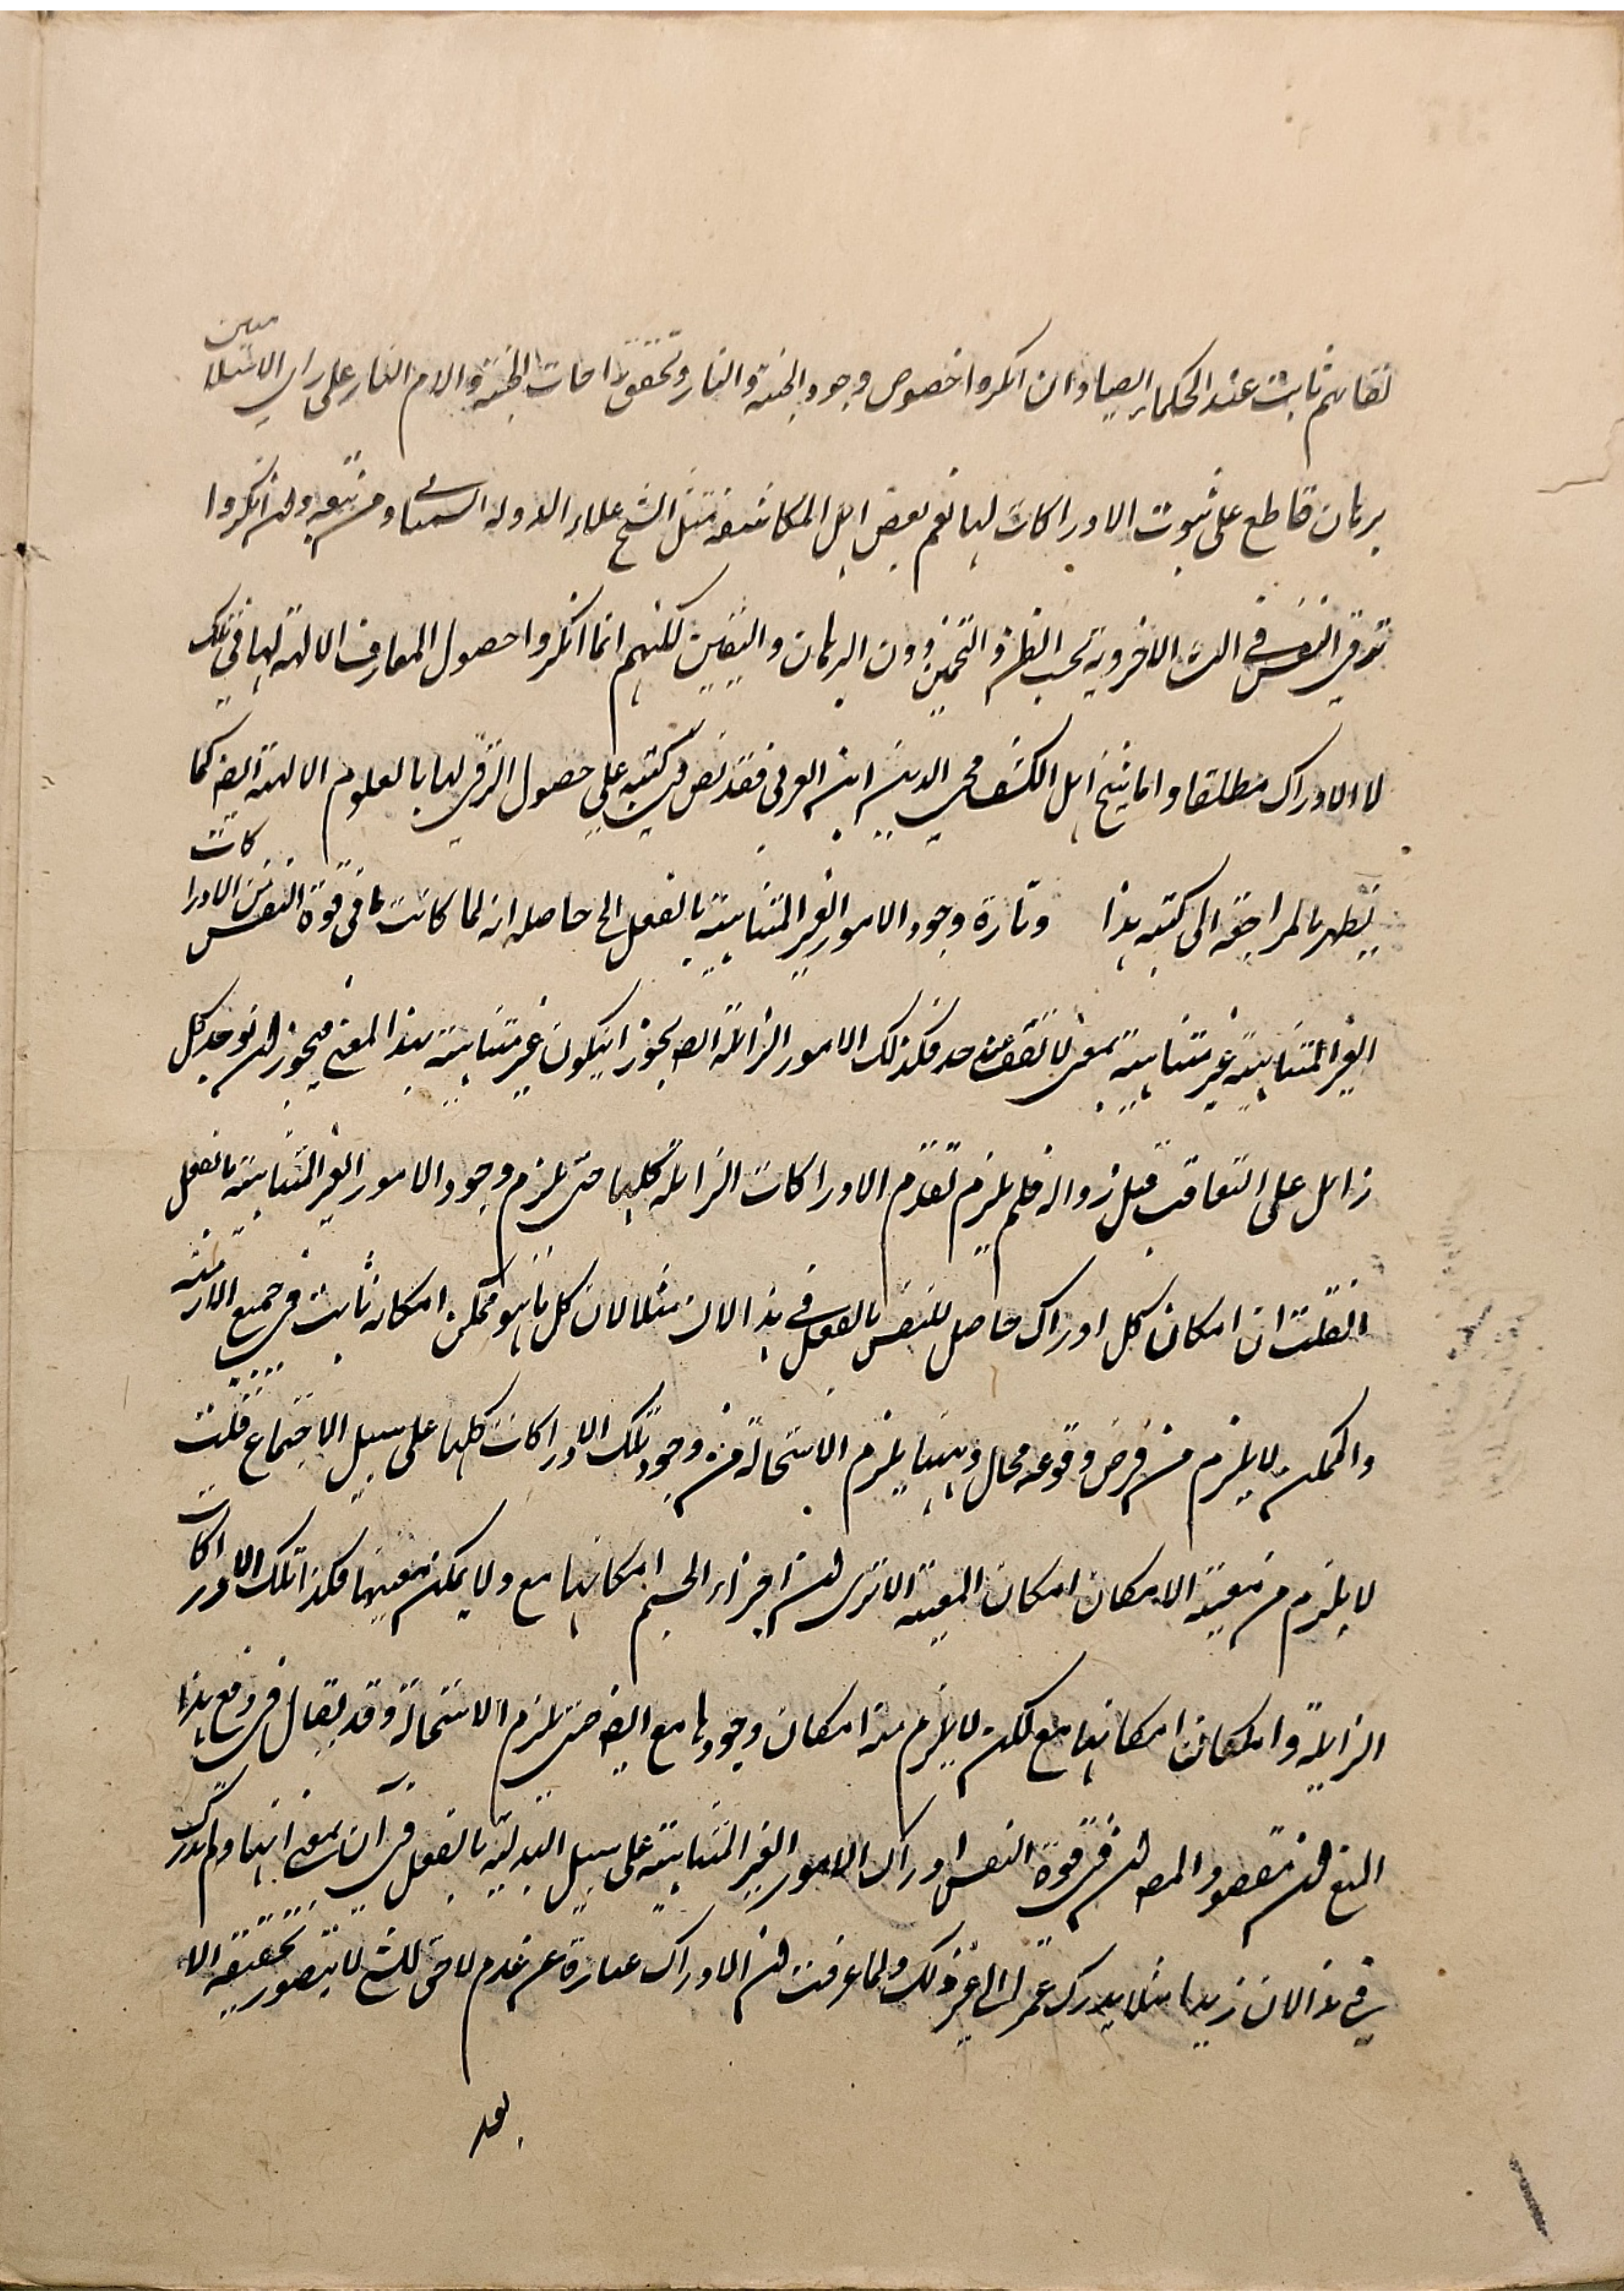 لقائهم ثابت عند الحكماء ايضا وان انكروا خصوص وجود الجنة والنار وتحقق راحات الجنة والام النار على راى الاسلاميين
برهان قاطع على ثبوت الادراكات لها نعم بعض اهل المكاشفة مثل الشيخ علاء الدولة السمنانى ومن تبعه وان انكروا
ترقى النفس فى النشأة الاخروية بحسب الظن والتخمين دون البرهان واليقين لكنهم انما انكروا حصول المعارف الالهية لها فى تلك
لا الادراك مطلقا واما شيخ اهل الكشف محى الدين ابن العربى فقد نص فى كتبه على حصول الترقى لها بالعلوم الالهية ايضا كما
يظهر بالمراجعة الى كتبه هذا وتارة وجود الامور الغير المتناهية بالفعل الى حاصله انه لما كانت ما فى قوة النفس من الادراكات
الغير المتناهية غير متناهية بمعنى لا تقف عند حد فكذلك الامور الزائلة ايضا يجوز ان يكون غير متناهية بهذا المعنى فيجوز ان يوجد كل
زائل على التعاقب قبل زواله فلم يلزم تقدم الادراكات الزائلة كلها حتى يلزم وجود الامور الغير المتناهية بالفعل
ان قلت ان امكان كل ادراك حاصل للنفس بالفعل فى هذا الان مثلا لان كل ما هو ممكن امكانه ثابت فى جميع الازمنة
والممكن لا يلزم من فرض وقوعه محال وههنا يلزم الاستحالة من وجود تلك الادراكات كلها على سبيل الاجتماع قلت
لا يلزم من معية الامكان امكان المعية الا ترى ان اجزاء الجسم امكانها مع ولا يمكن معيتها فكذا تلك الادراكات
الزائلة وان كان امكانها مع لكن لا يلزم منه امكان وجودها مع ايضا حتى يلزم الاستحالة وقد يقال فى دفع هذا
المنع ان مقصود المصـ ان فى قوة النفس ادراك الامور الغير المتناهية على سبيل البدلية بالفعل فى آن بمعنى انها لو لم يدرك
فى هذا الان زيدا مثلا يدرك عمرا الى غير ذلك ولما عرفت ان الادراك عبارة عن عدم لاحق للشئ لا يتصور تحقيقه الا
بعد